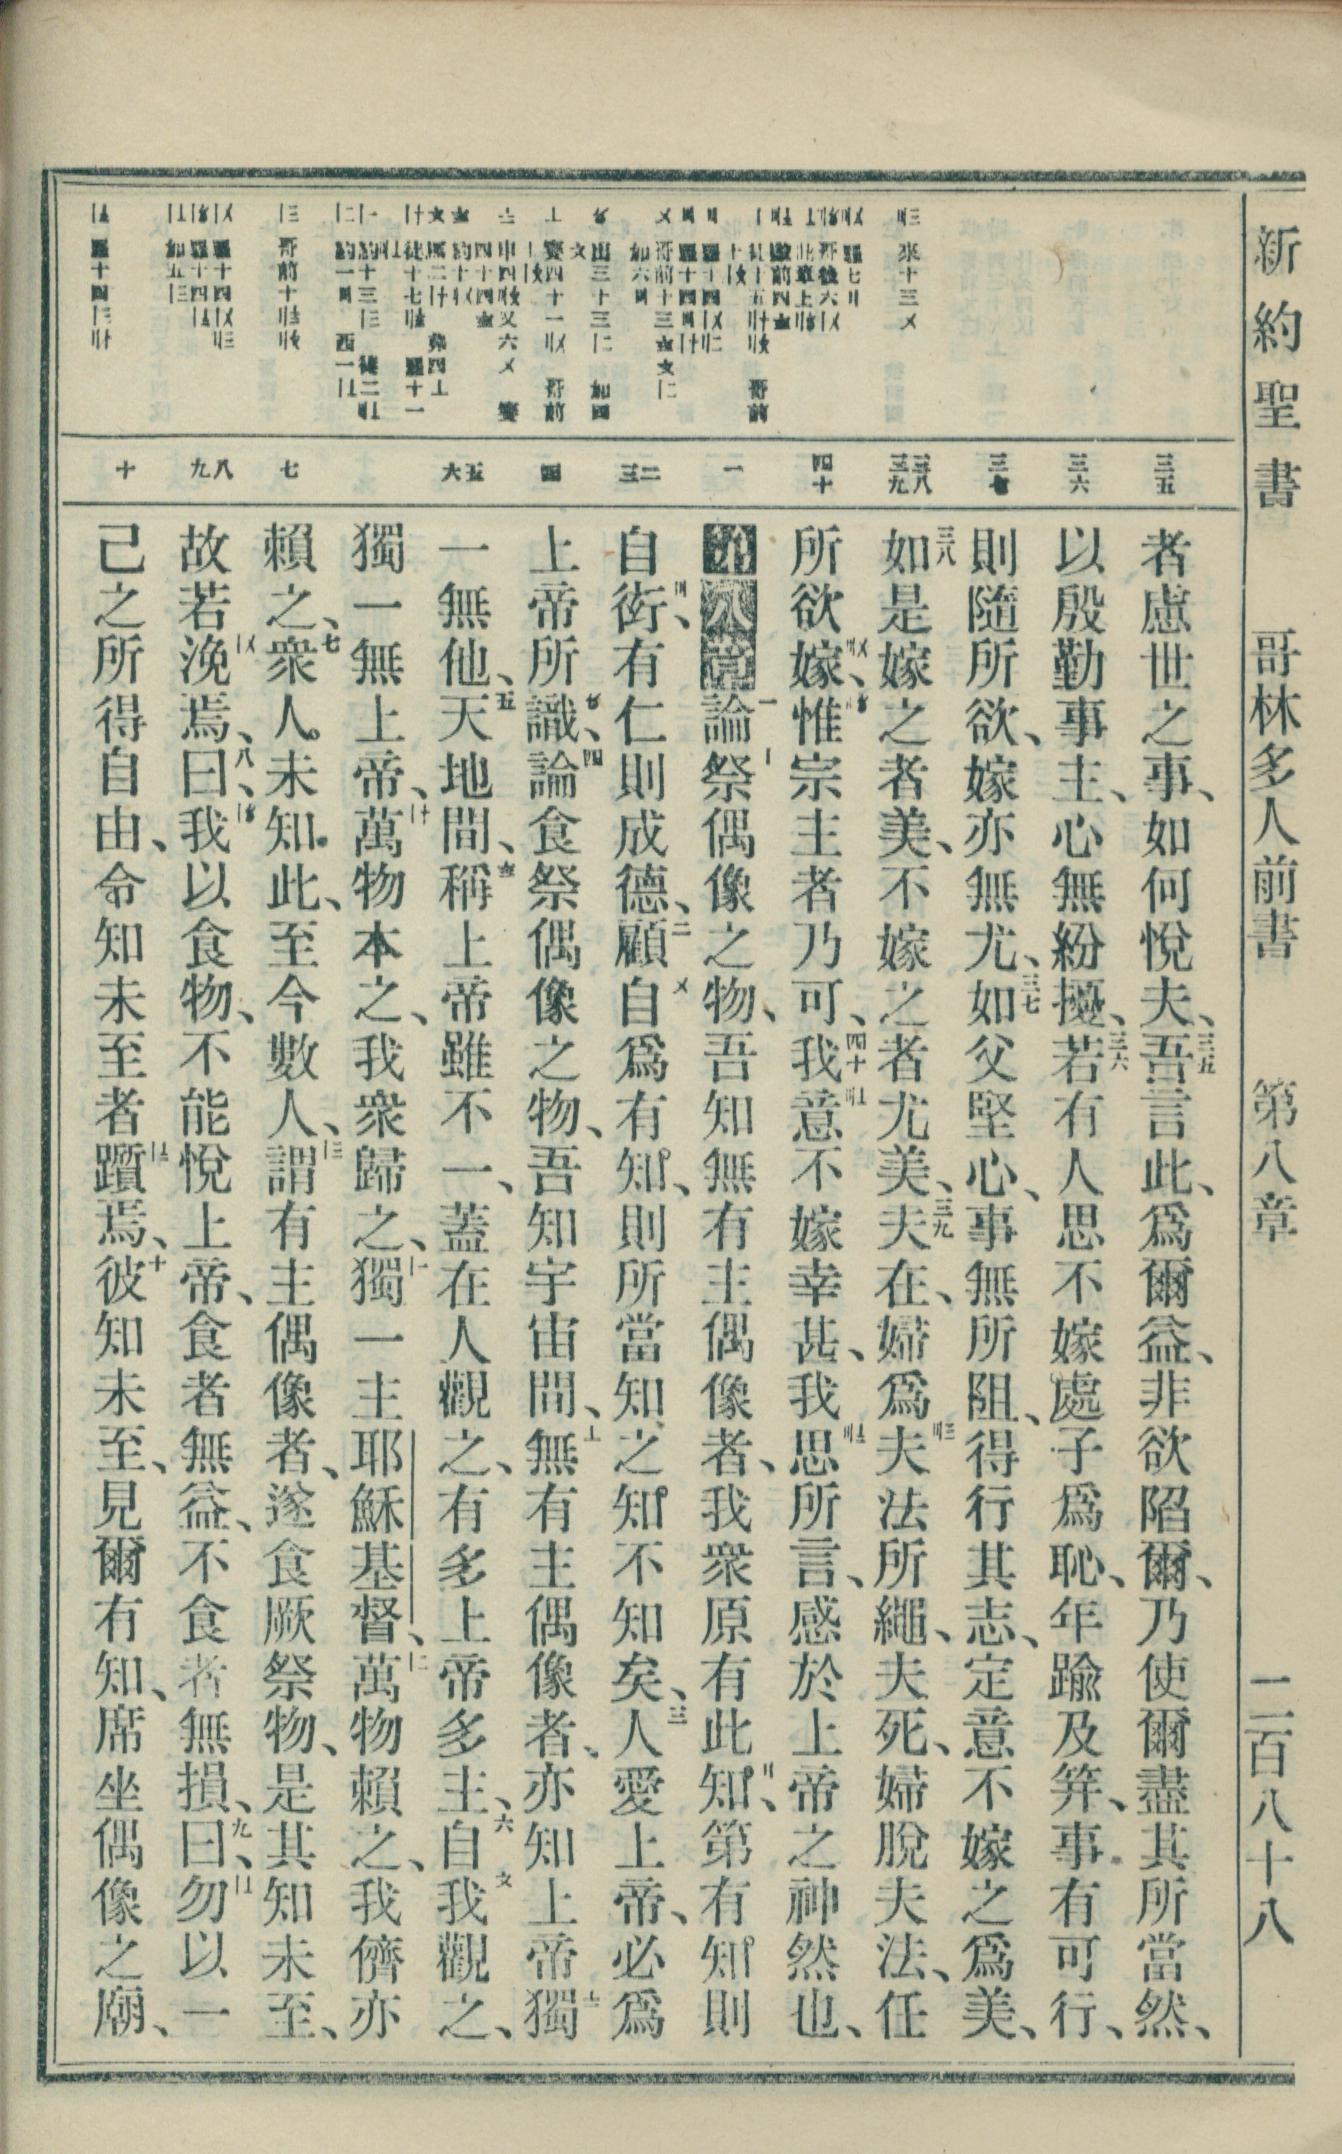 新約聖書 哥林多人前書 第八章 二百八十八
三五
三六
三七
三八 三九
四十
一
二 三
四
五 六
七
八 九
十
者慮世之事、如何悅夫、三五吾言此、爲爾益、非欲陷爾、乃使爾盡其所當然、
以殷勤事主、心無紛擾、三六若有人思不嫁處子爲恥、年踰及笄、事有可行、
則隨所欲、嫁亦無尤、三七如父堅心、事無所阻、得行其志、定意不嫁之爲美、
三八如是嫁之者美、不嫁之者尤美、三九夫在、婦爲夫法所繩、夫死、婦脫夫法、任
所欲嫁、惟宗主者乃可、四十我意不嫁幸甚、我思所言、感於上帝之神然也、
第八章一論祭偶像之物、吾知無有主偶像者、我衆原有此知、第有知則
自衒、有仁則成德、二顧自爲有知、則所當知之知不知矣、三人愛上帝、必爲
上帝所識、四論食祭偶像之物、吾知宇宙間、無有主偶像者、亦知上帝獨
一無他、五天地間、稱上帝雖不一、蓋在人觀之、有多上帝多主、六自我觀之、
獨一無上帝、萬物本之、我衆歸之、獨一主耶穌基督、萬物賴之、我儕亦
賴之、七衆人未知此、至今數人、謂有主偶像者、遂食厥祭物、是其知未至、
故若浼焉、八曰、我以食物、不能悅上帝、食者無益、不食者無損、九曰、勿以一
己之所得自由、令知未至者躓焉、十彼知未至、見爾有知、席坐偶像之廟、